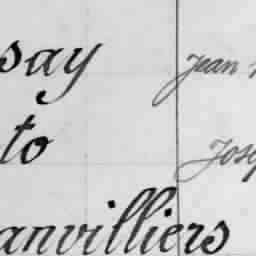 say Jean
to
anvilliers